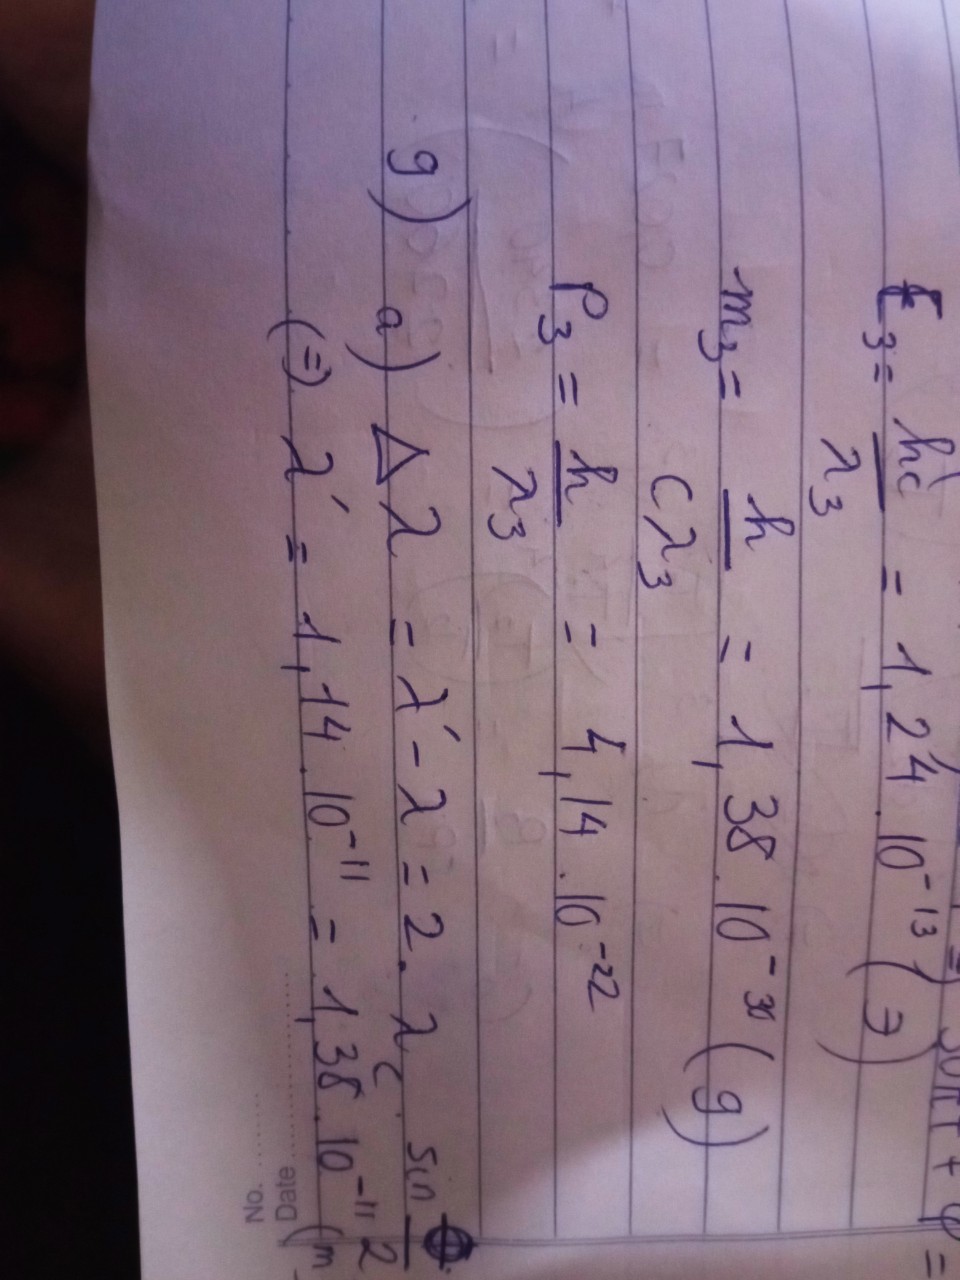 30π + φ =
E₃ = hc/λ₃ = 1,24 . 10⁻¹³ (J)
m₃ = h/cλ₃ = 1,38 . 10⁻³⁰ (g)
P₃ = h/λ₃ = 4,14 . 10⁻²²
9) a) Δλ = λ' - λ = 2 . λc . sin θ/2
(=) λ' = 1,14 . 10⁻¹¹ = 1,38 . 10⁻¹¹ (m
No.
Date